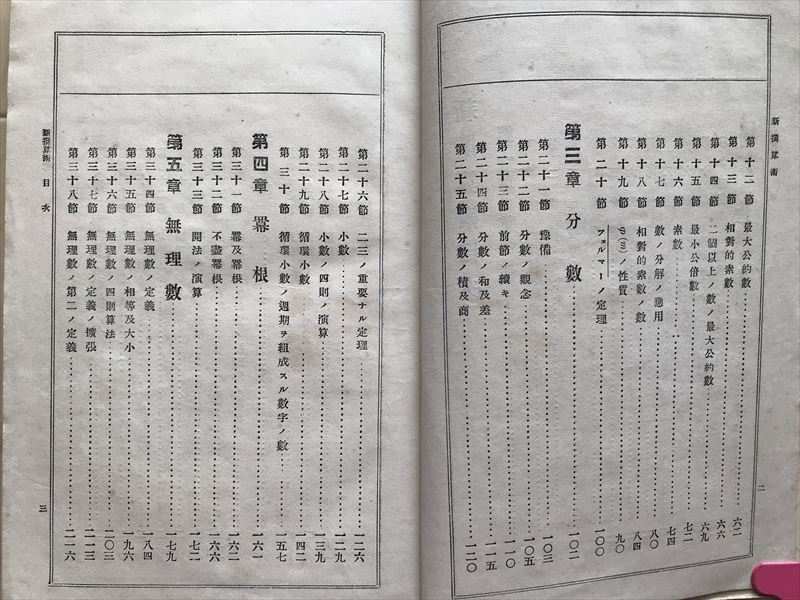 新撰算術
二
第十二節 最大公約數 六二
第十三節 相對的素數 六六
第十四節 二個以上ノ數ノ最大公約數 六九
第十五節 最小公倍數 七二
第十六節 素數 七四
第十七節 數ノ分解ノ應用 八〇
第十八節 相對的素數ノ數 八四
第十九節 φ(m)ノ性質 九〇
第二十節 フェルマーノ定理 一〇〇
第三章 分數 一〇二
第二十一節 豫備 一〇三
第二十二節 分數ノ觀念 一〇五
第二十三節 前節ノ續キ 一一〇
第二十四節 分數ノ和及差 一一五
第二十五節 分數ノ積及商 一二〇
第二十六節 二三ノ重要ナル定理 一二六
第二十七節 小數 一二九
第二十八節 小數ノ四則ノ演算 一三九
第二十九節 循環小數 一四二
第三十節 循環小數ノ週期ヲ組成スル數字ノ數 一五七
第四章 冪根 一六一
第三十一節 冪及冪根 一六二
第三十二節 不盡冪根 一六六
第三十三節 開法ノ演算 一七二
第五章 無理數 一七九
第三十四節 無理數ノ定義 一八四
第三十五節 無理數ノ相等及大小 一九六
第三十六節 無理數ノ四則算法 二〇三
第三十七節 無理數ノ定義ノ擴張 二一三
第三十八節 無理數ノ第二ノ定義 二一六
新撰算術 目次
三